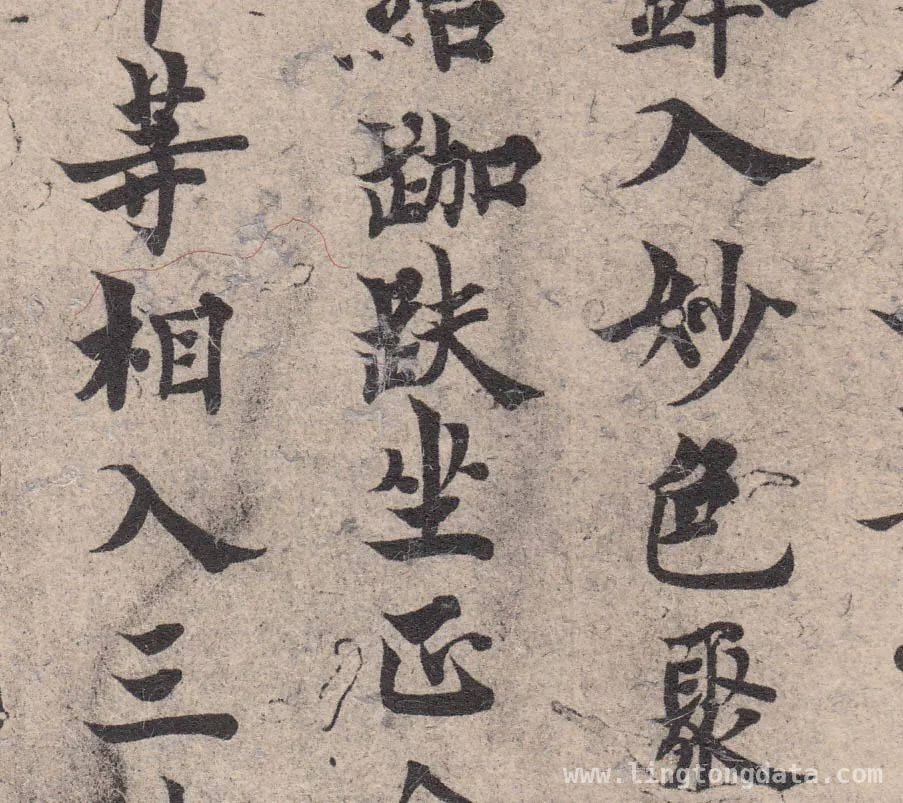 入妙色聚
結跏趺坐正
等相入三
www.lingtongdata.com